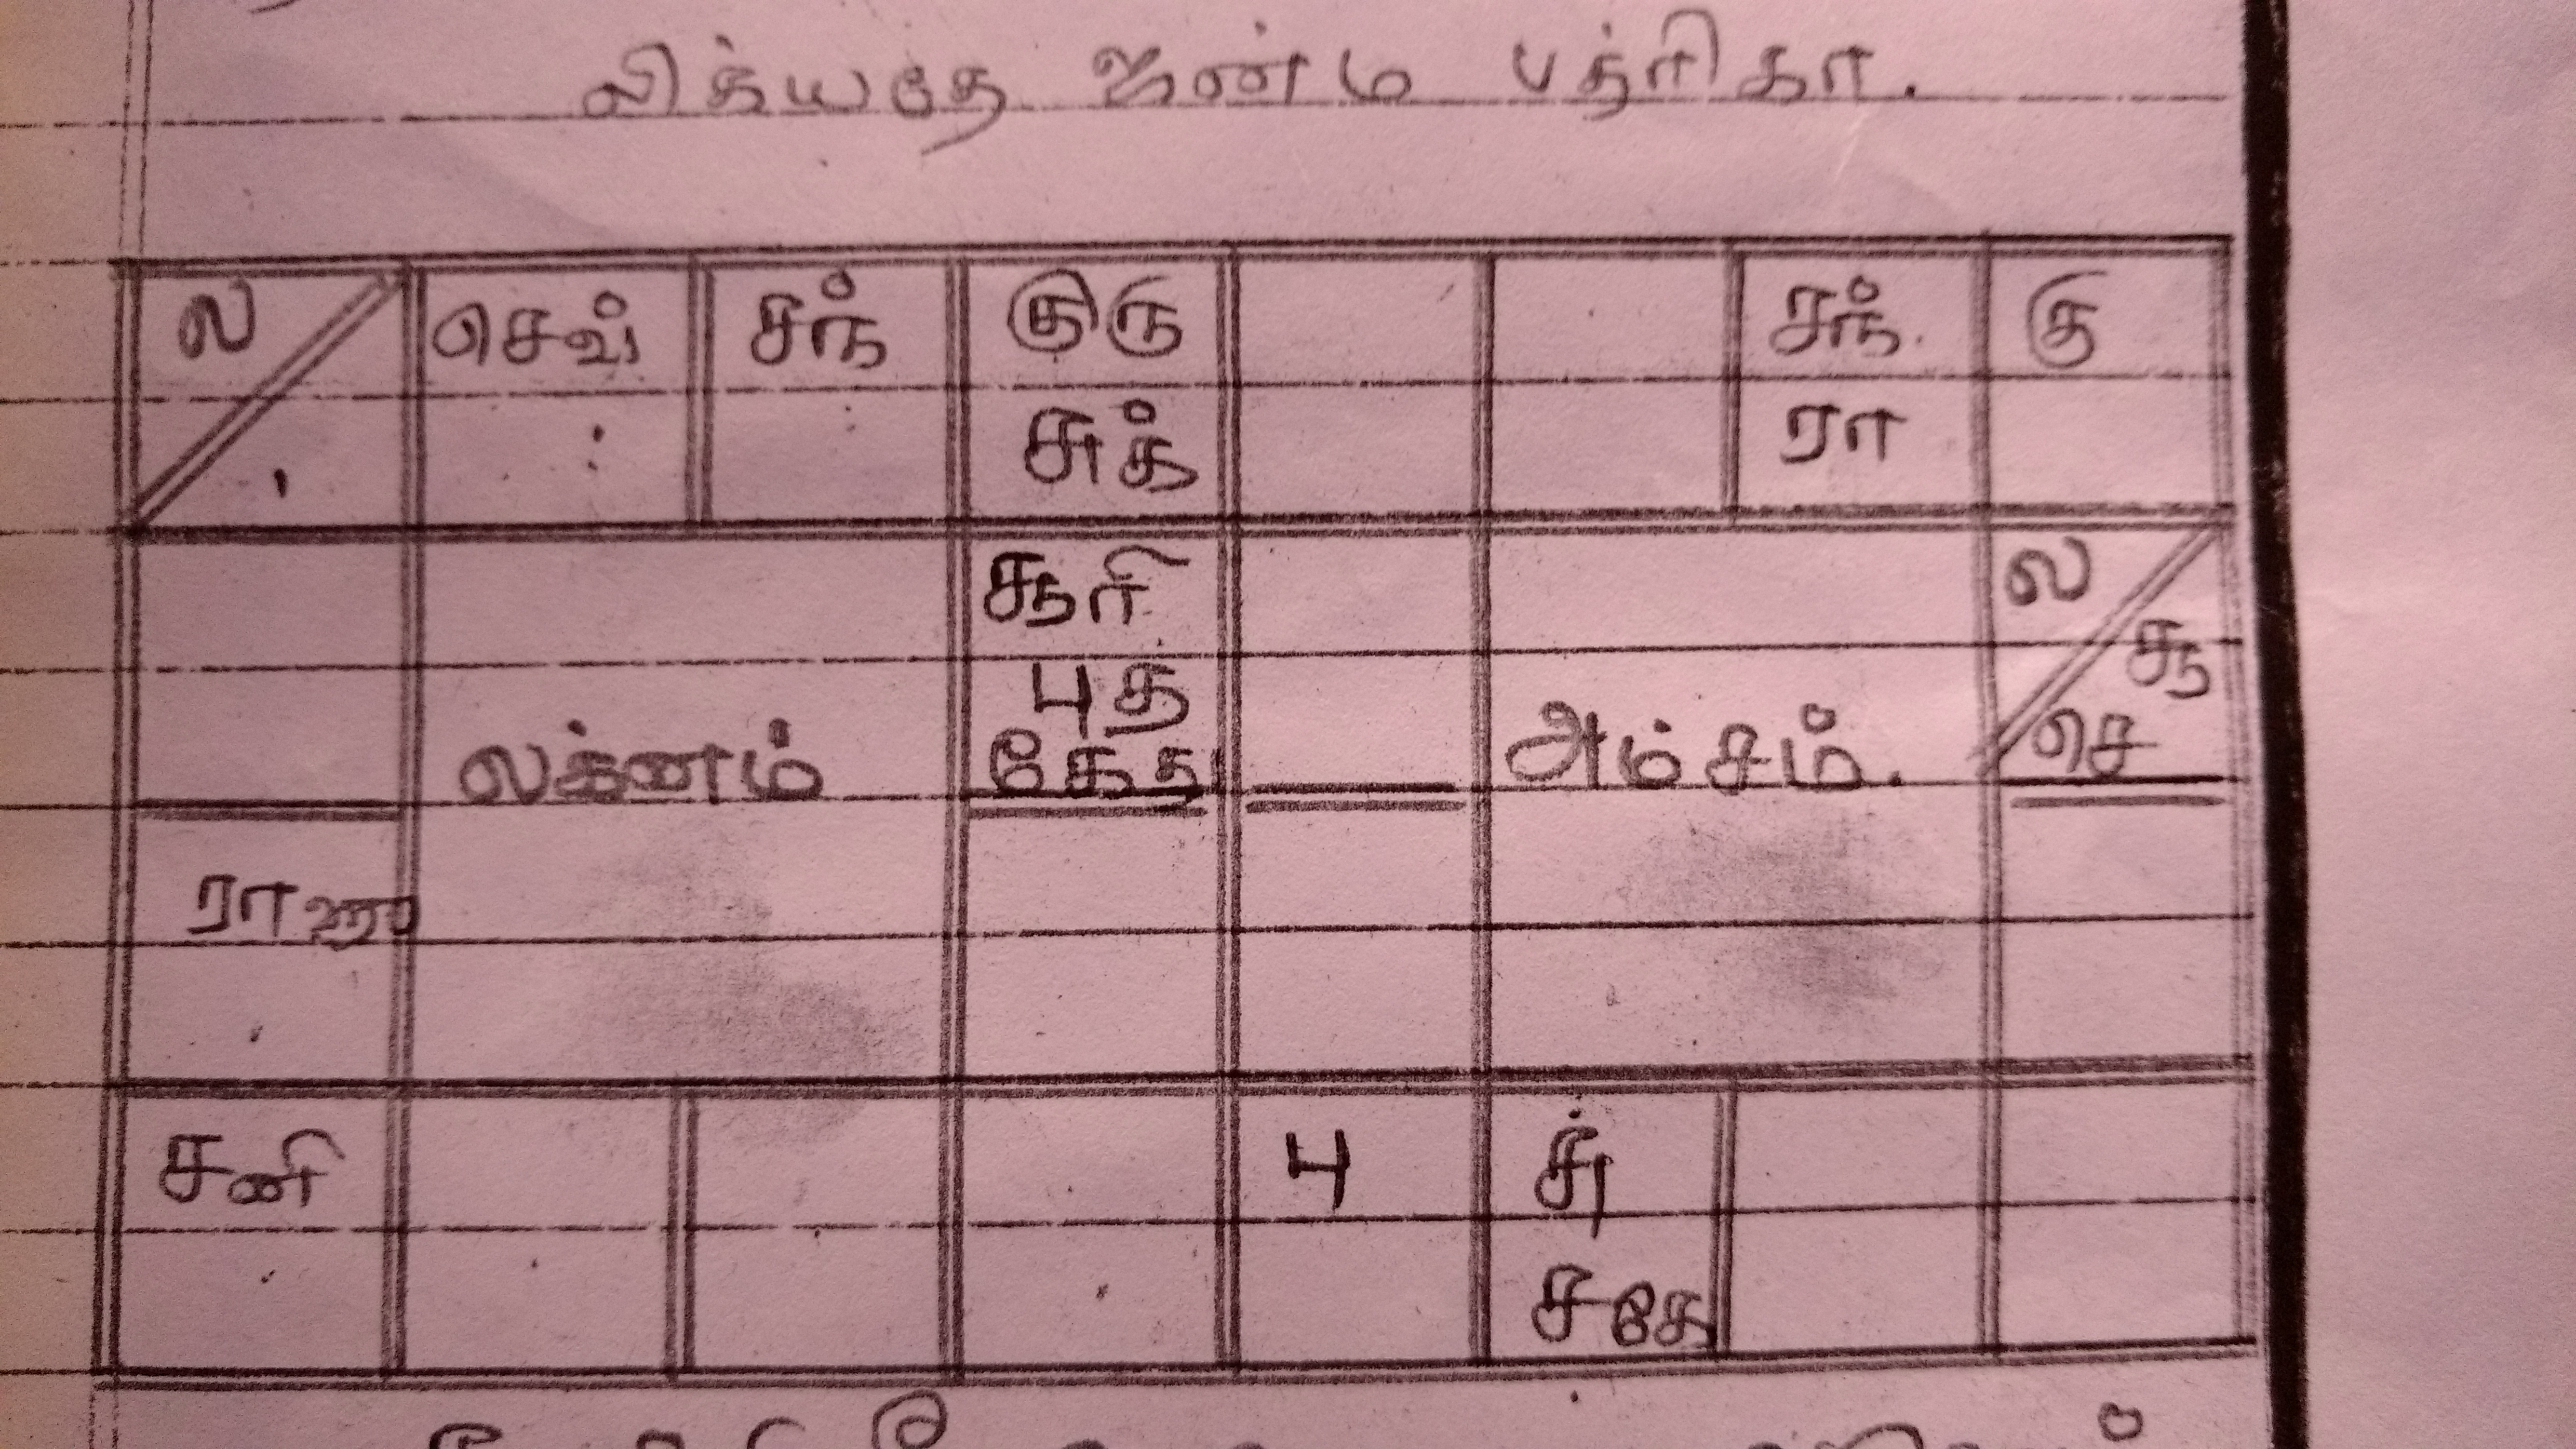 லிக்யதே ஜன்ம பத்ரிகா.
ல செவ் சந் குரு சந். கு
சுக் ரா
சூரி ல
புத சூ
லக்னம் கேது அம்சம். செ
ராகு
சனி பு சு
ச கே